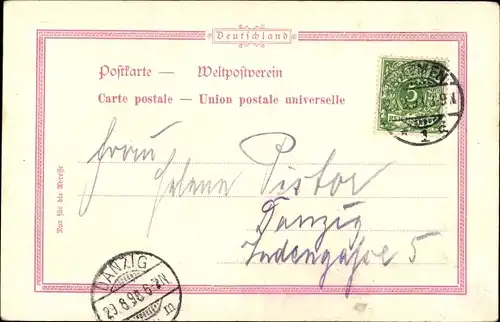 Deutschland
Postkarte — Weltpostverein
Carte postale — Union postale universelle
BREMEN
5
* 1 c
Frau
Helene Pistor
Danzig
Hundegasse 5
Nur für die Adresse
DANZIG
29.8.98.6-7N
m